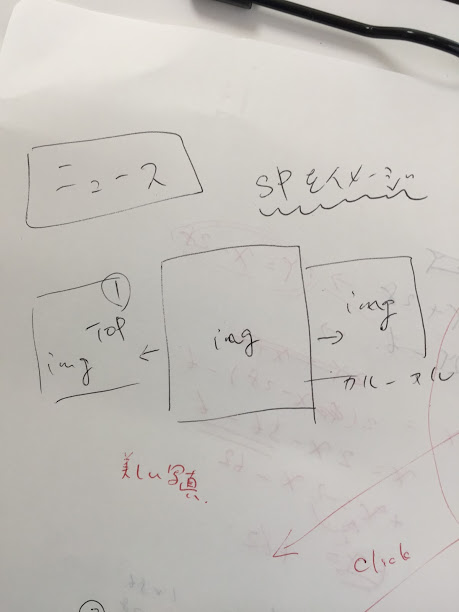 ニュース
SPをイメージ
①
TOP
img
←
img
→
img
カルーセル
美しい写真
click